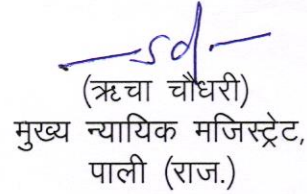 sd
(ऋचा चौधरी)
मुख्य न्यायिक मजिस्ट्रेट,
पाली (राज.)